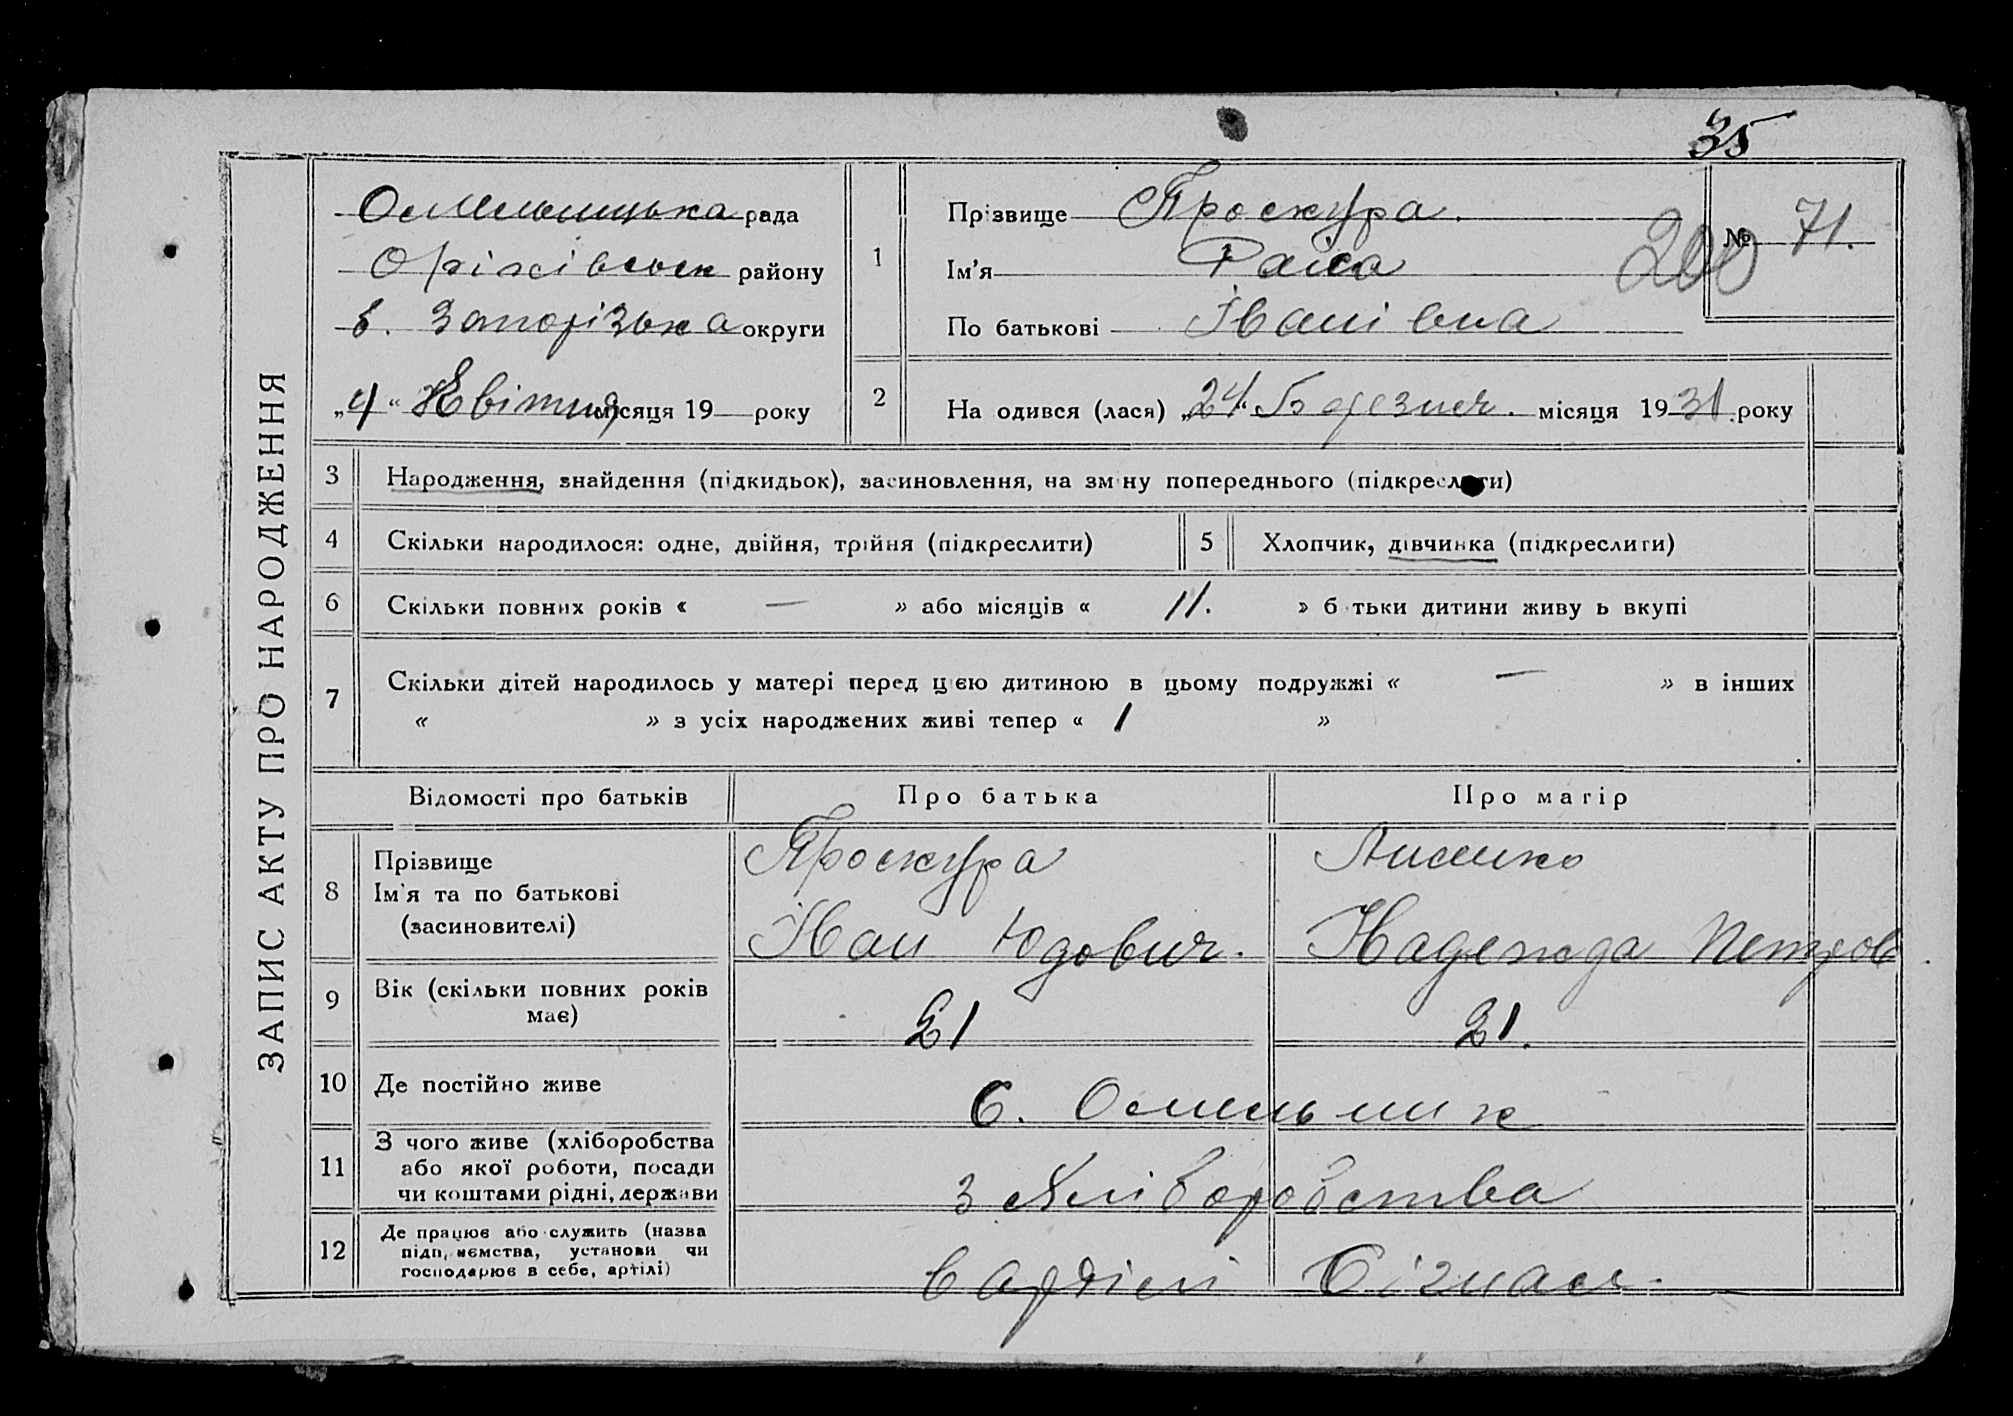 35
Омельницька рада
Оріхівськ району
в. Запорізька округи
„4“ Квітня місяця 19 року
ЗАПИС АКТУ ПРО НАРОДЖЕННЯ
1
Прізвище Проскура.
Ім'я Раїса
По батькові Іванівна
№ 71.
200
2 На одився (лася) „24“ Березня. місяця 1931 року
3 Народження, знайдення (підкидьок), засиновлення, на зм ну попереднього (підкреслити)
4 Скільки народилося: одне, двійня, трійня (підкреслити) 5 Хлопчик, дівчинка (підкреслити)
6 Скільки повних років « — » або місяців « 11. » б тьки дитини живу ь вкупі
7 Скільки дітей народилось у матері перед цією дитиною в цьому подружжі « — » в інших
« » з усіх народжених живі тепер « 1 »
Відомості про батьків Про батька Про матір
8 Прізвище Проскура
Ім'я та по батькові
(засиновителі) Іван Юдович. Надежда Петров.
9 Вік (скільки повних років 21 21.
має)
10 Де постійно живе С. Омельник
11 З чого живе (хліборобства
або якої роботи, посади
чи коштами рідні, держави з хліборобства
12 Де працює або служить (назва
підп, иємства, установи чи
господарює в себе, артілі) в артілі